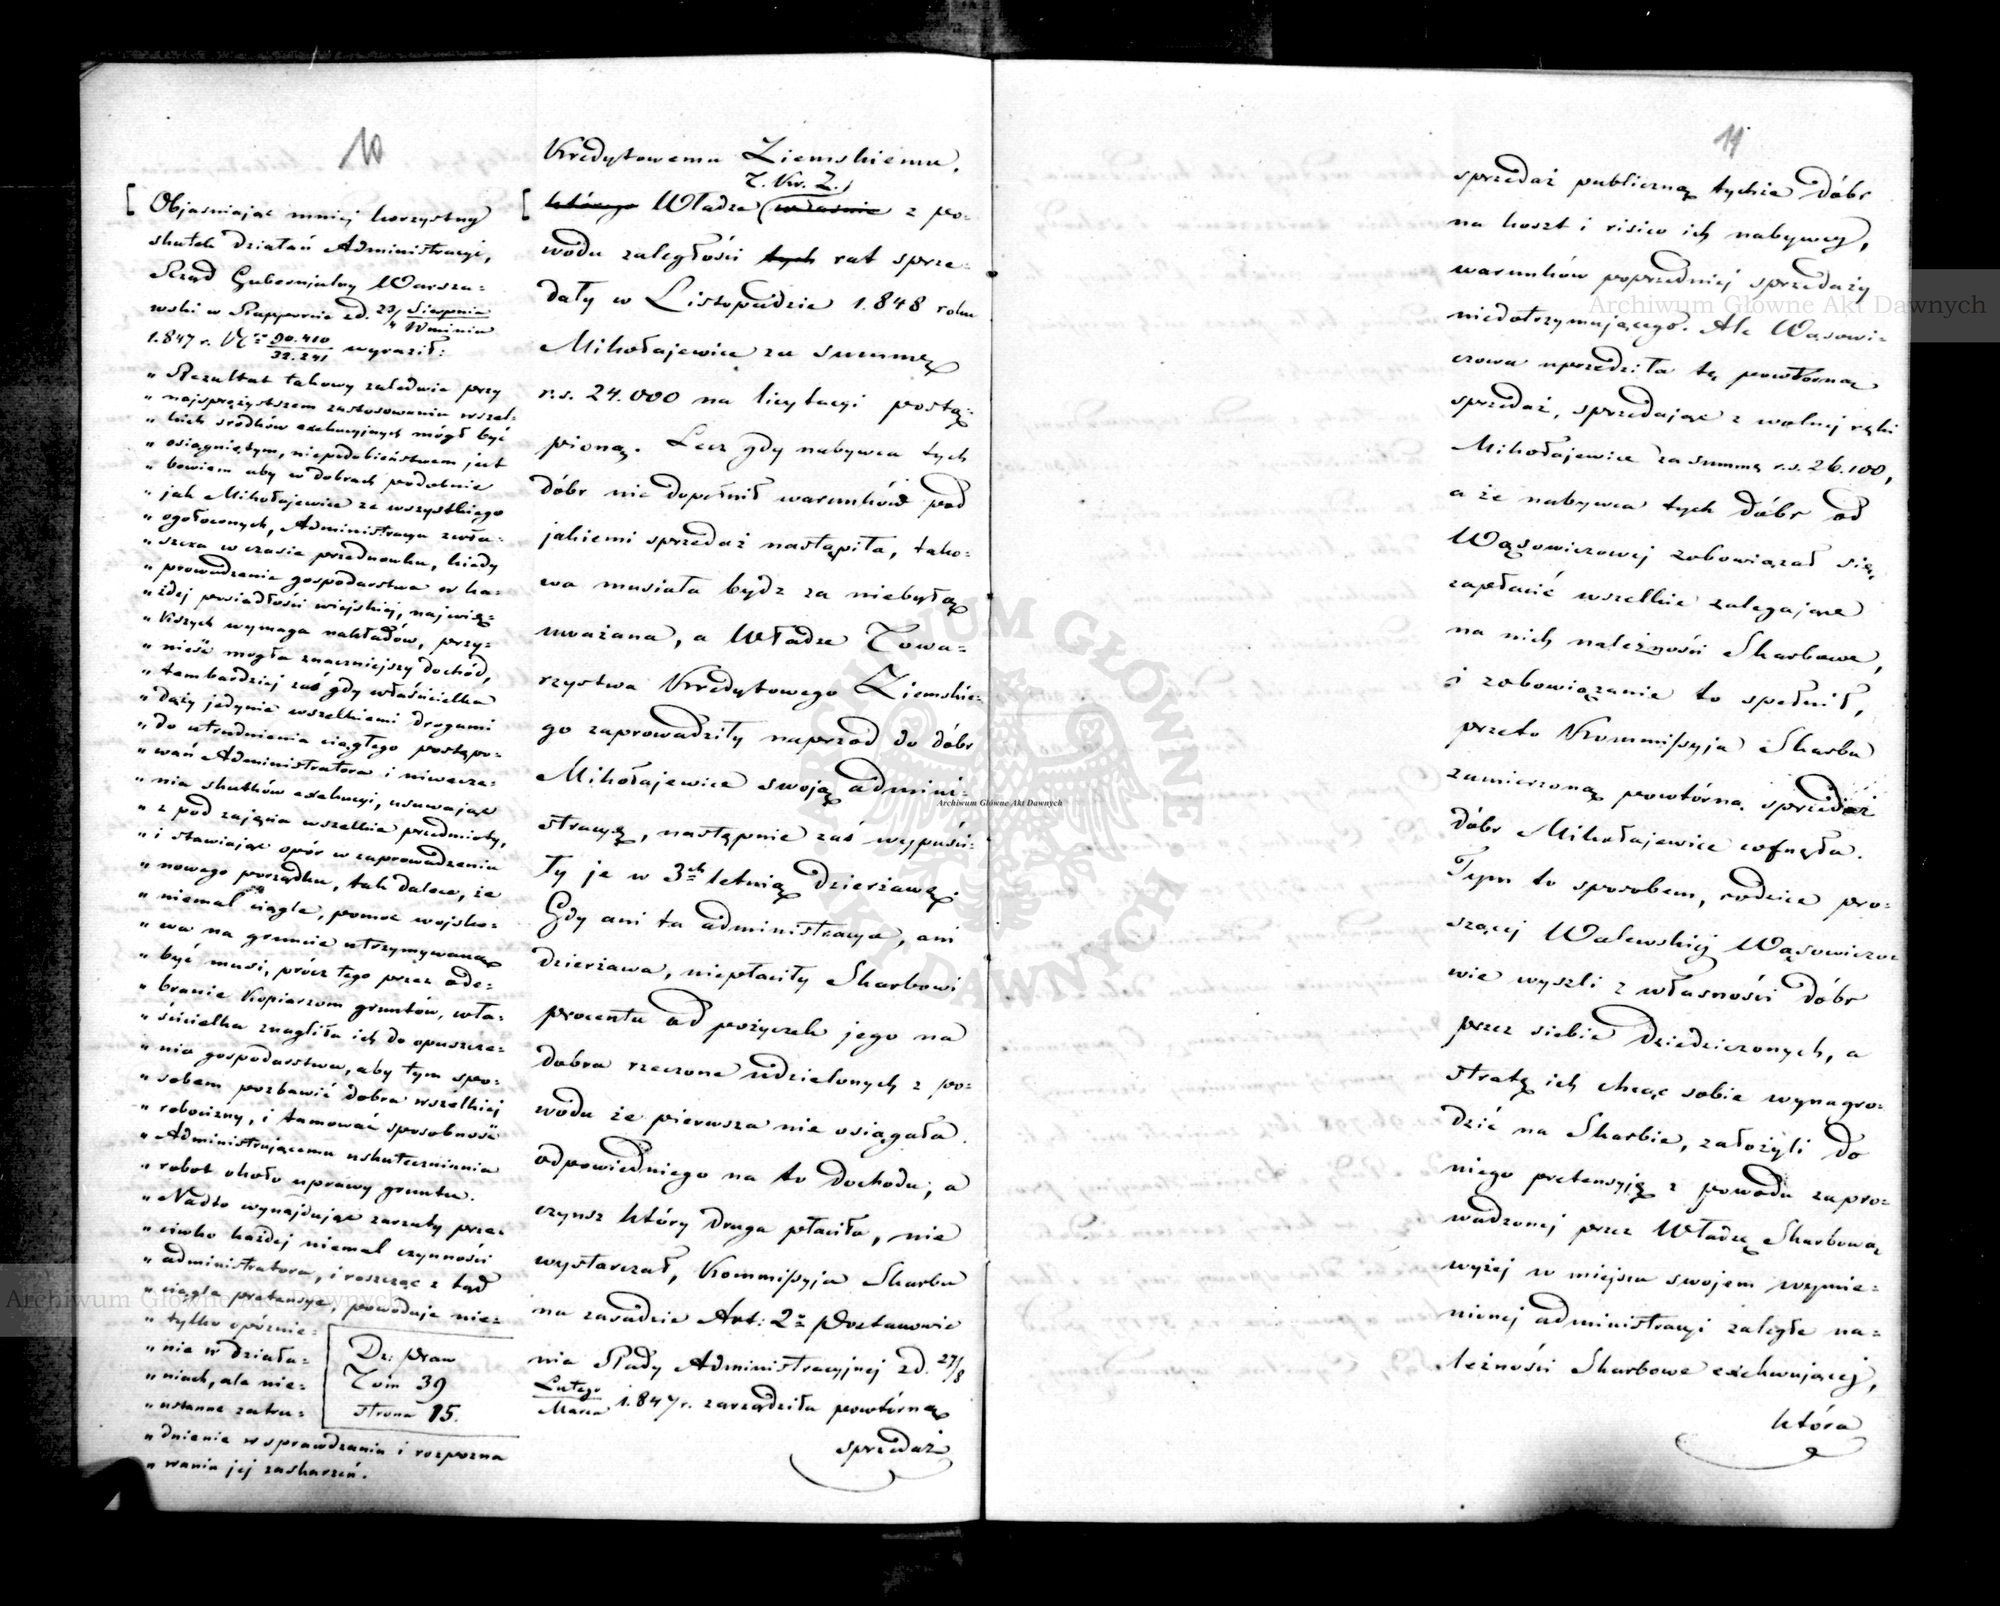 10
[ Objaśniając mniej korzystny
skutek działań Administracyi,
Rząd Gubernjalny Warsza-
wski w Rapporcie z d. 23/4 Sierpnia/Wrninia
1.847 r. No 90.410/32.241 wyraził:
„ Rezultat takowy zaledwie przy
„ najsprężystszem zastosowaniu wszel-
„ kich środków exekucyjnych mógł być
„ osiągniętym, niepodobieństwem jest
„ bowiem aby w dobrach podobnie
„ jak Mikołajewice ze wszystkiego
„ ogołoconych, Administracya zwła-
„ szcza w czasie przednowku, kiedy
„ prowadzenie gospodarstwa w ka-
„ żdej posiadłości wiejskiej, najwię-
„ kszych wymaga nakładów, przy-
„ nieść mogła znaczniejszy dochód,
„ tembardziej zaś gdy właścicielka
„ dąży jedynie wszelkiemi drogami
„ do utrudnienia ciągłego postępo-
„ wań Administratora i niwecze-
„ nia skutków exekucyi, usuwając
„ z pod zajęcia wszelkie przedmioty,
„ i stawiając opór w zaprowadzeniu
„ nowego porządku, tak dalece, że
„ niemal ciągle, pomoc wojsko-
„ wa na gruncie utrzymywaną
„ być musi, prócz tego przez ode-
„ branie Kopiarzom gruntów, wła-
„ ścicielka znagliła ich do opuszcze-
„ nia gospodarstwa, aby tym spo-
„ sobem pozbawić dobra wszelkiej
„ robocizny, i tamować sposobność
„ Administrującemu uskutecznienia
„ robot około uprawy gruntu.
„ Nadto wynajdując zarzuty prze-
„ ciwko każdej niemal czynności
„ administratora, i roszcząc z tąd
„ ciągle pretensye, powoduje nie-
„ tylko opóźnie-
„ nie w działa-
„ niach, ale nie-
„ ustanne zatru-
„ dnienie w sprawdzaniu i rozpozna
„ waniu jej zaskarżeń.
Dz: praw
Tom 39
strona 15.
Kredytowemu Ziemskiemu.
T. Kr. Z.
[ którego Władze (właśnie z po-
wodu zaległości tych rat sprze-
dały w Listopadzie 1.848 roku
Mikołajewice za summę
r.s. 24.000 na licytacyi postą-
pioną. Lecz gdy nabywca tych
dóbr nie dopełnił warunków pod
jakiemi sprzedaż nastąpiła, tako-
wa musiała bydz za niebyłą
uważana, a Władze Towa-
rzystwa Kredytowego Ziemskie-
go zaprowadziły naprzód do dóbr
Mikołajewice swoją admini-
stracyę, następnie zaś wypuści-
ły je w 3ch letnią dzierżawę.
Gdy ani ta administracya, ani
dzierżawa, niepłaciły Skarbowi
procentu od pożyczek jego na
dobra rzeczone udzielonych z po-
wodu że pierwsza nie osiągała
odpowiedniego na to dochodu; a
czynsz który druga płaciła, nie
wystarczał, Kommissyja Skarbu
na zasadzie Art: 2o Postanowie
nia Rady Administracyjnej z d. 27/8
Lutego/Marca 1.847 r. zarządziła powtórną
sprzedaż
11
sprzedaż publiczną tychże dóbr
na koszt i risico ich nabywcy,
warunków poprzedniej sprzedaży
niedotrzymującego. Ale Wąsowi-
czowa uprzedziła tę powtórną
sprzedaż, sprzedając z wolnej ręki
Mikołajewice za summę r.s. 26.100,
a że nabywca tych dóbr od
Wąsowiczowej zobowiązał się,
zapłacić wszelkie zalegające
na nich należności Skarbowe,
i zobowiązanie to spełnił,
przeto Kommissyja Skarbu
zamierzoną powtórną sprzedaż
dóbr Mikołajewice cofnęła.
Tym to sposobem, rodzice pro-
szącej Walewskiej Wąsowiczo-
wie wyszli z własności dóbr
przez siebie dziedziczonych, a
stratę ich chcąc sobie wynagro-
dzić na Skarbie, założyli do
niego pretensyję z powodu zapro-
wadzonej przez Władzę Skarbową
wyżej w miejscu swojem wymie-
nionej administracyi zaległe na-
leżności Skarbowe exekwującej,
która
Archiwum Główne Akt Dawnych
Archiwum Główne Akt Dawnych
Archiwum Główne Akt Dawnych
ARCHIWUM GŁÓWNE AKT DAWNYCH